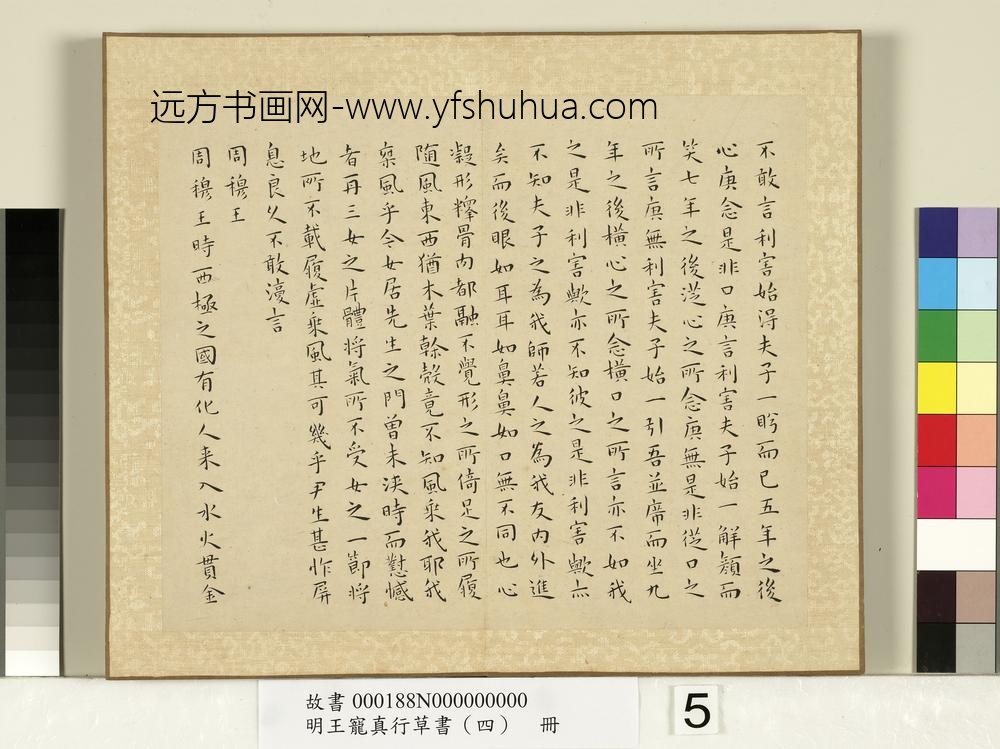 远方书画网-www.yfshuhua.com
不敢言利害始得夫子一眄而已五年之後
心庚念是非口庚言利害夫子始一解顏而
笑七年之後從心之所念庚無是非從口之
所言庚無利害夫子始一引吾並席而坐九
年之後橫心之所念橫口之所言亦不知我
之是非利害歟亦不知彼之是非利害歟亦
不知夫子之為我師若人之為我友內外進
矣而後眼如耳耳如鼻鼻如口無不同也心
凝形釋骨肉都融不覺形之所倚足之所履
隨風東西猶木葉幹殼竟不知風乘我耶我
乘風乎今女居先生之門曾未浹時而懟憾
者再三女之片體將氣所不受女之一節將
地所不載履虛乘風其可幾乎尹生甚怍屏
息良久不敢復言
周穆王
周穆王時西極之國有化人来入水火貫金
故書 000188N000000000
明王寵真行草書（四） 冊
5